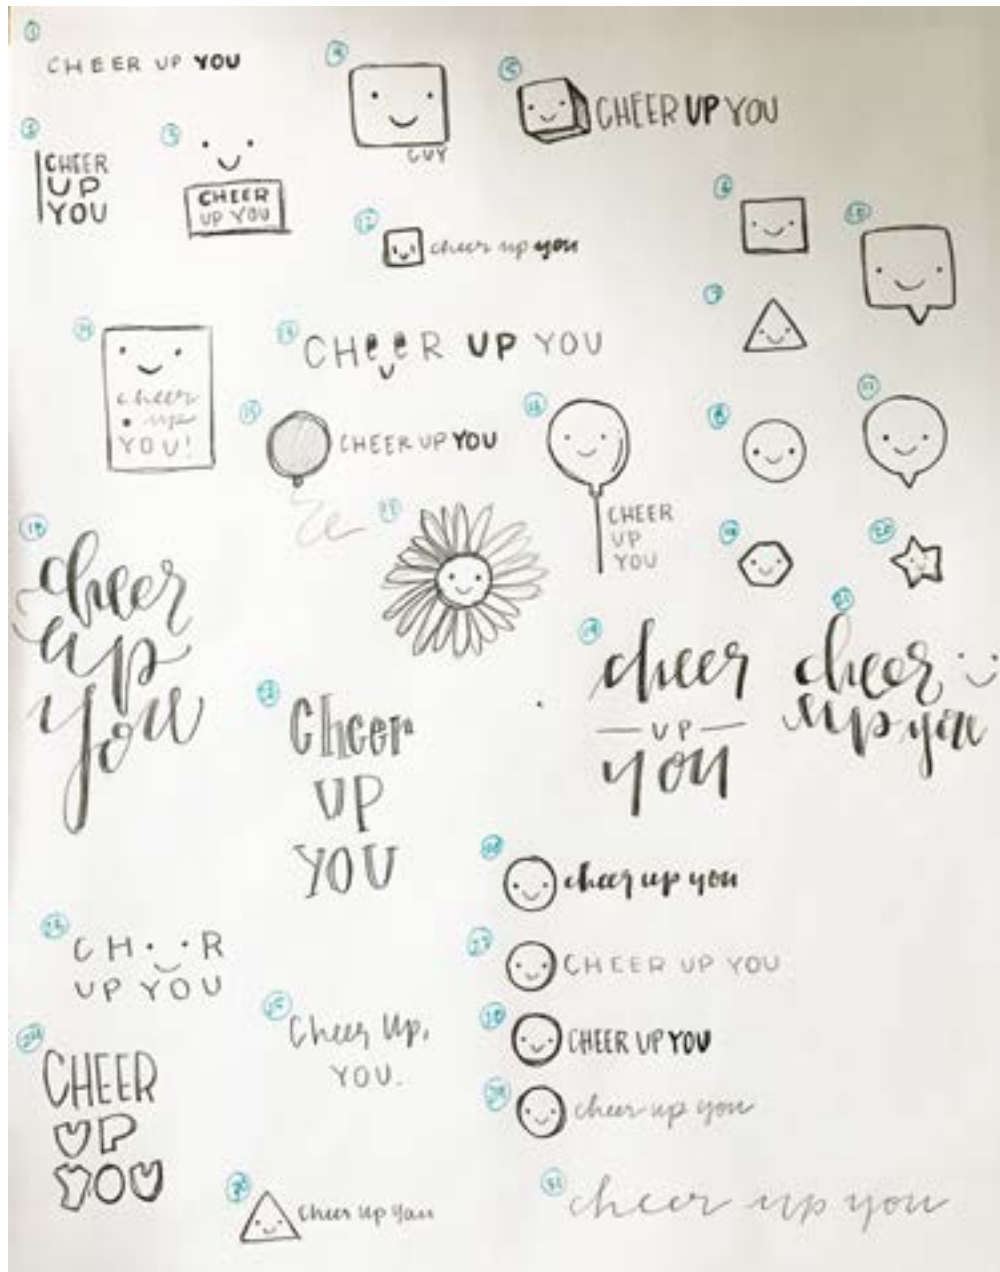 1
CHEER UP YOU
2
CHEER
UP
YOU
3
CHEER
UP YOU
4
GUY
5
CHEER UP YOU
12
cheer up you
6
10
7
14
cheer
up
YOU!
13
CHeeR UP YOU
15
CHEER UP YOU
16
CHEER
UP
YOU
8
11
18
cheer
up
you
9
20
19
cheer
UP
you
21
cheer
up you
Cheer
UP
YOU
cheer up you
23
CH R
UP YOU
27
CHEER UP YOU
24
CHEER
UP
YOU
25
Cheer Up,
YOU.
CHEER UP YOU
29
cheer up you
30
cheer up you
31
cheer up you